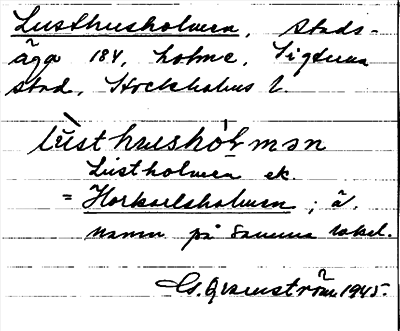 Lusthusholmen, stads-
äga 184, holme, Sigtuna
stad, Stockholms l.
lùsthushól̵mən
Lustholmen ek.
= Horkarlsholmen; ä.
namn på samma lokal.
G. Granström 1945.